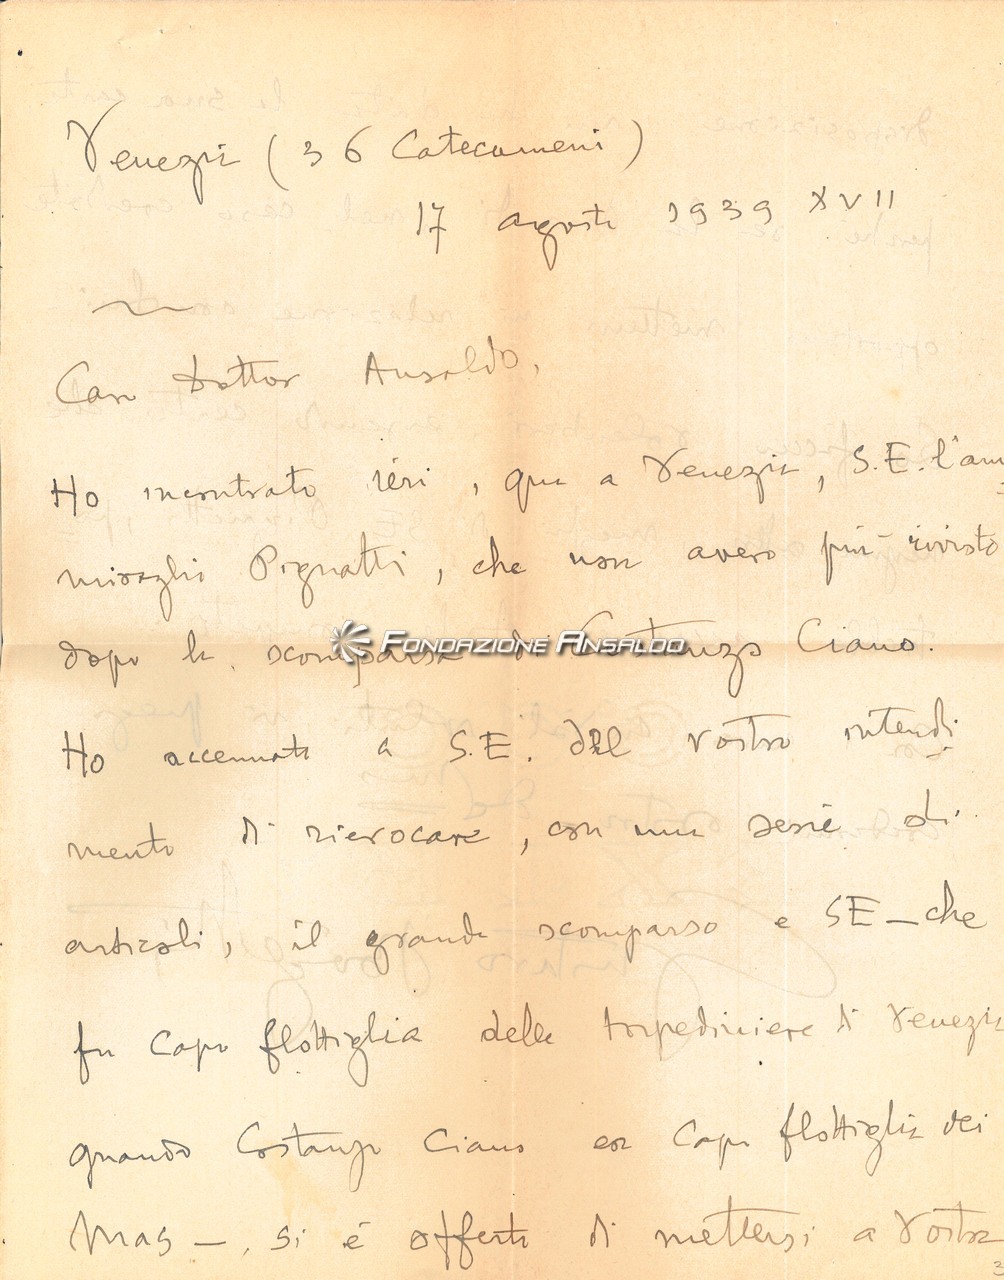 Venezia (36 Catecumeni)
17 agosto 1939 XVII
Caro Dottor Ansaldo,
Ho incontrato ieri, qui a Venezia, S.E. l'am
miraglio Pignatti, che non avevo più rivisto
dopo la scomparsa di Costanzo Ciano.
FONDAZIONE ANSALDO
Ho accennato a S.E. del vostro intendi
mento di rievocare, con una serie di
articoli, il grande scomparso e SE - che
fu Capo flottiglia delle torpediniere di Venezia
quando Costanzo Ciano era Capo flottiglia dei
Mas -, si è offerto di mettersi a Vostra